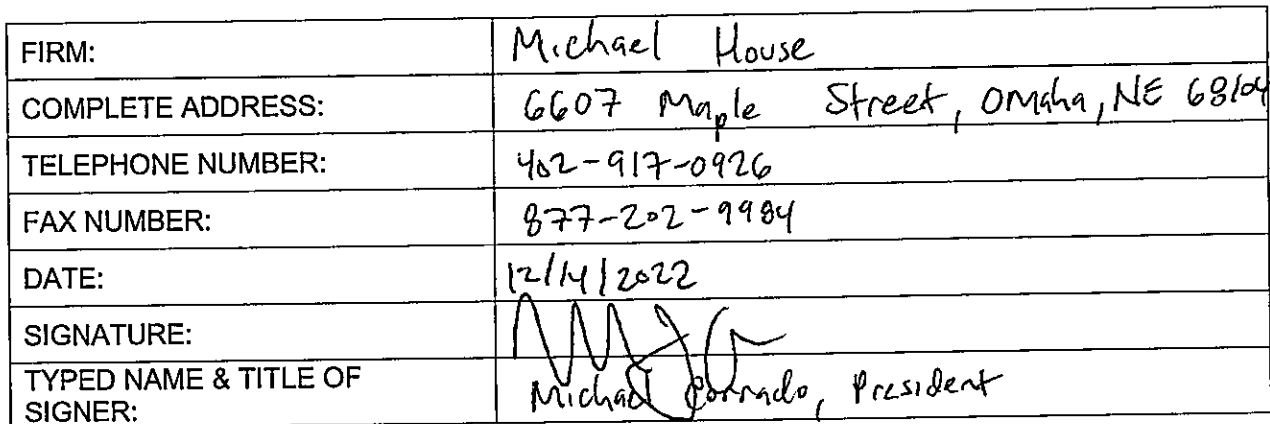 FIRM: Michael House
COMPLETE ADDRESS: 6607 Maple Street, Omaha, NE 68104
TELEPHONE NUMBER: 402-917-0926
FAX NUMBER: 877-202-9984
DATE: 12/14/2022
SIGNATURE:
TYPED NAME & TITLE OF
SIGNER: Michael Corrado, President